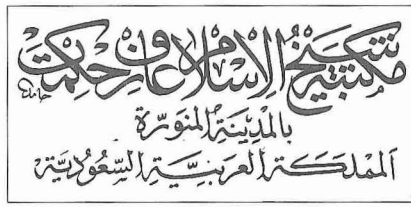 مكتبة شيخ الإسلام عارف حكمت
بالمدينة المنورة
المملكة العربية السعودية